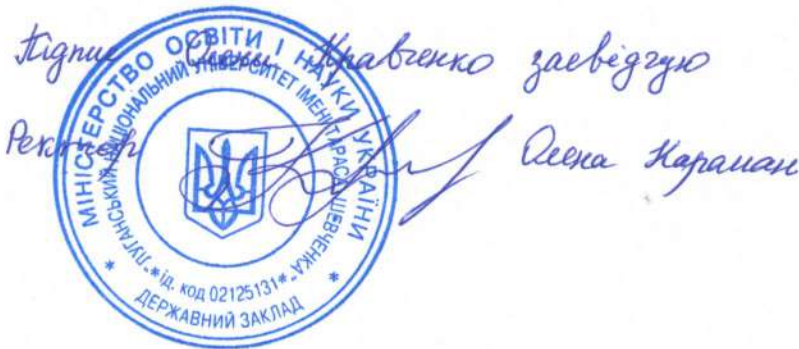 Підпис Олени Кравченко засвідчую
Ректор Олена Караман
МІНІСТЕРСТВО ОСВІТИ І НАУКИ УКРАЇНИ
* ДЕРЖАВНИЙ ЗАКЛАД *
"ЛУГАНСЬКИЙ НАЦІОНАЛЬНИЙ УНІВЕРСИТЕТ ІМЕНІ ТАРАСА ШЕВЧЕНКА"
* ід. код 02125131 *